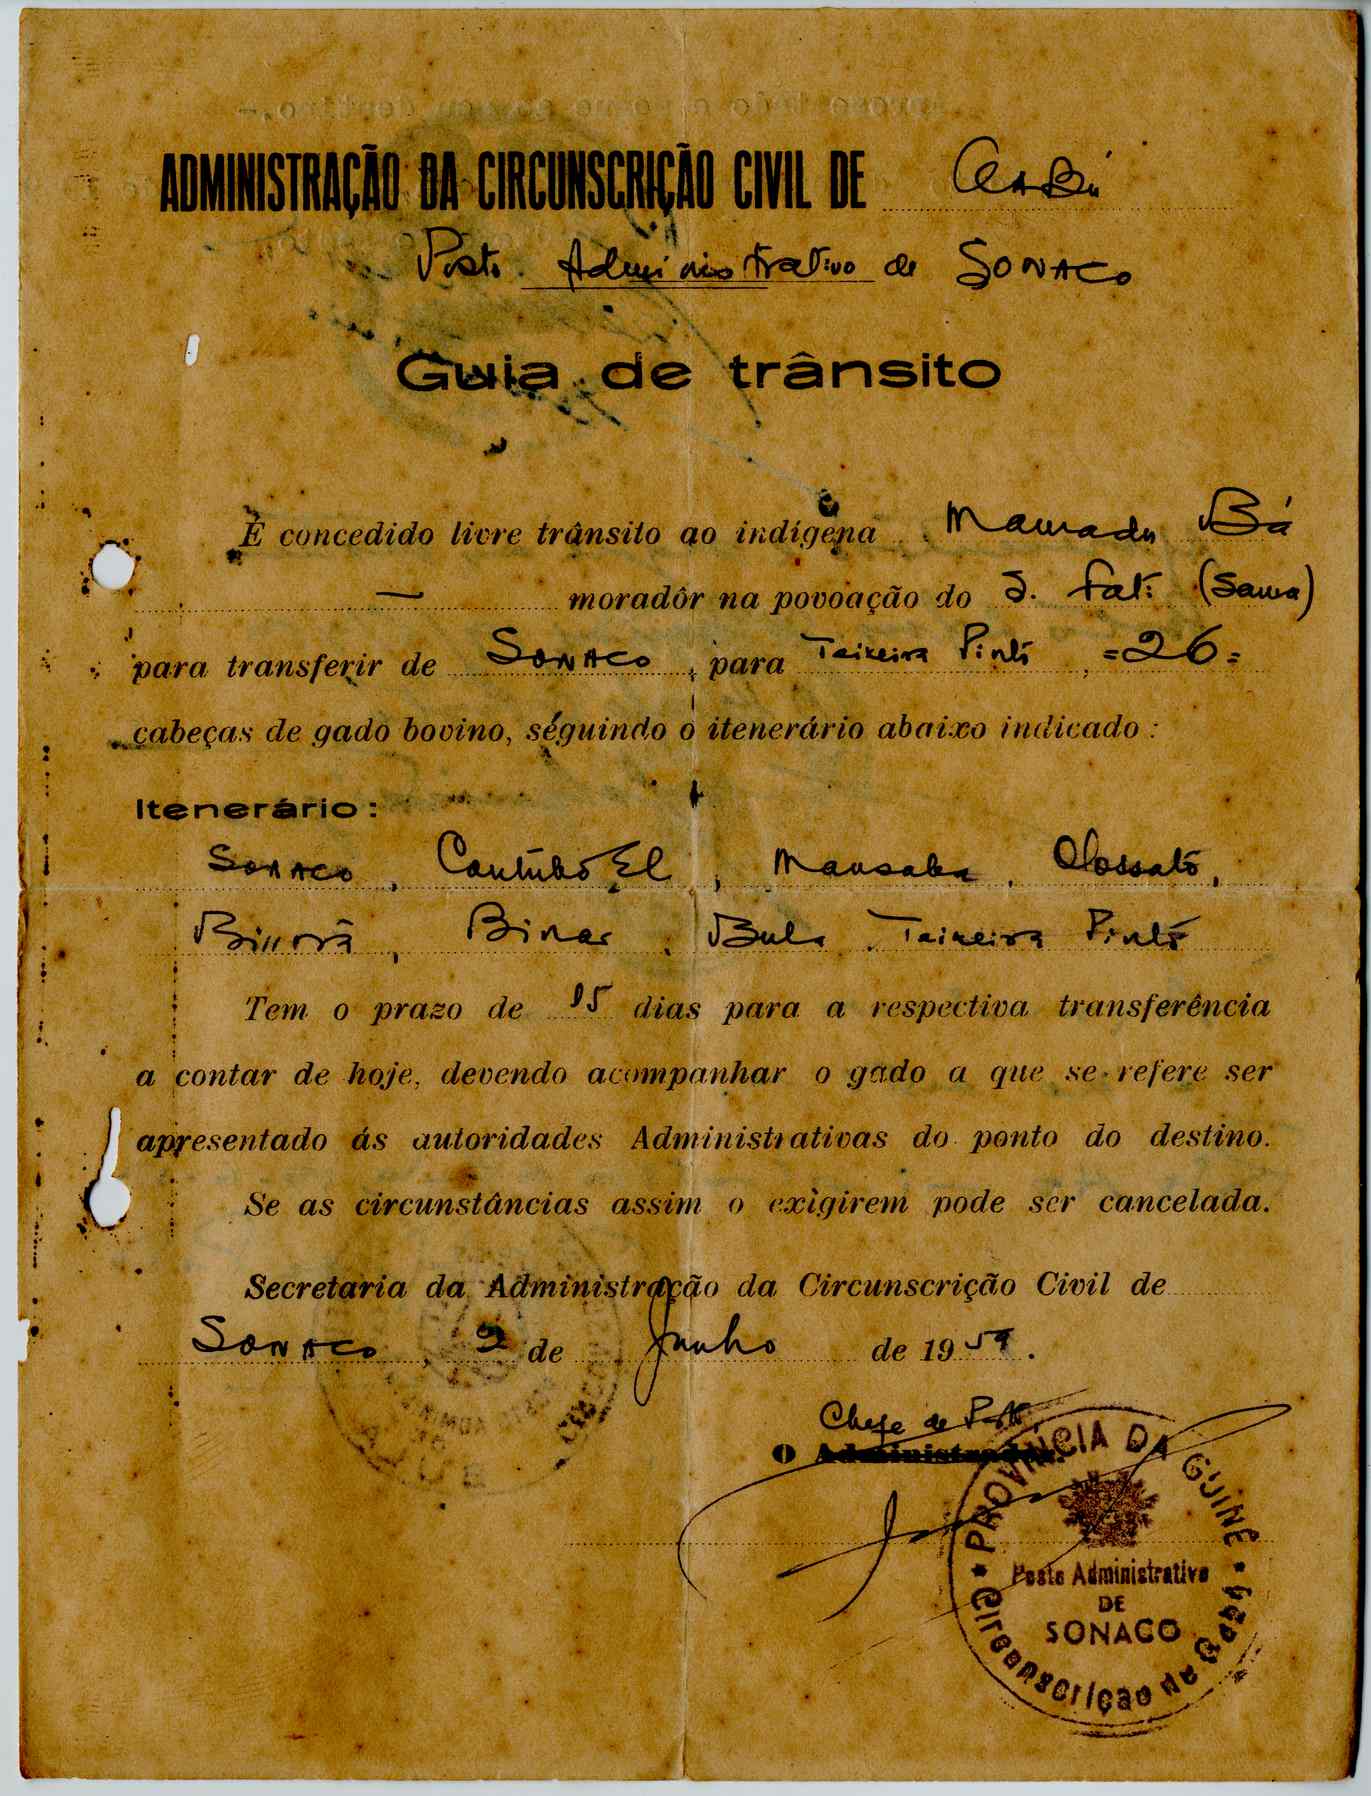 ADMINISTRAÇÃO DA CIRCUNSCRIÇÃO CIVIL DE Gabú
Posto Administrativo de SONACO
Guia de trânsito
É concedido livre trânsito ao indígena Mamadu Bá
— moradôr na povoação do S. Fati (Sama)
para transferir de SONACO, para Teixeira Pinto, =26=
cabeças de gado bovino, séguindo o itenerário abaixo indicado :
Itenerário :
SONACO, Contubo El, Mansaba, Olossato,
Binar, Bula, Teixeira Pinto
Tem o prazo de 15 dias para a respectiva transferência
a contar de hoje, devendo acompanhar o gado a que se refere ser
apresentado ás autoridades Administrativas do ponto do destino.
Se as circunstâncias assim o exigirem pode ser cancelada.
Secretaria da Administração da Circunscrição Civil de
SONACO, 2 de Junho de 1959.
Chefe de Posto
O Administrador
PROVINCIA DA GUINÉ
Posto Administrativo
DE
SONACO
Circunscrição de Gabú